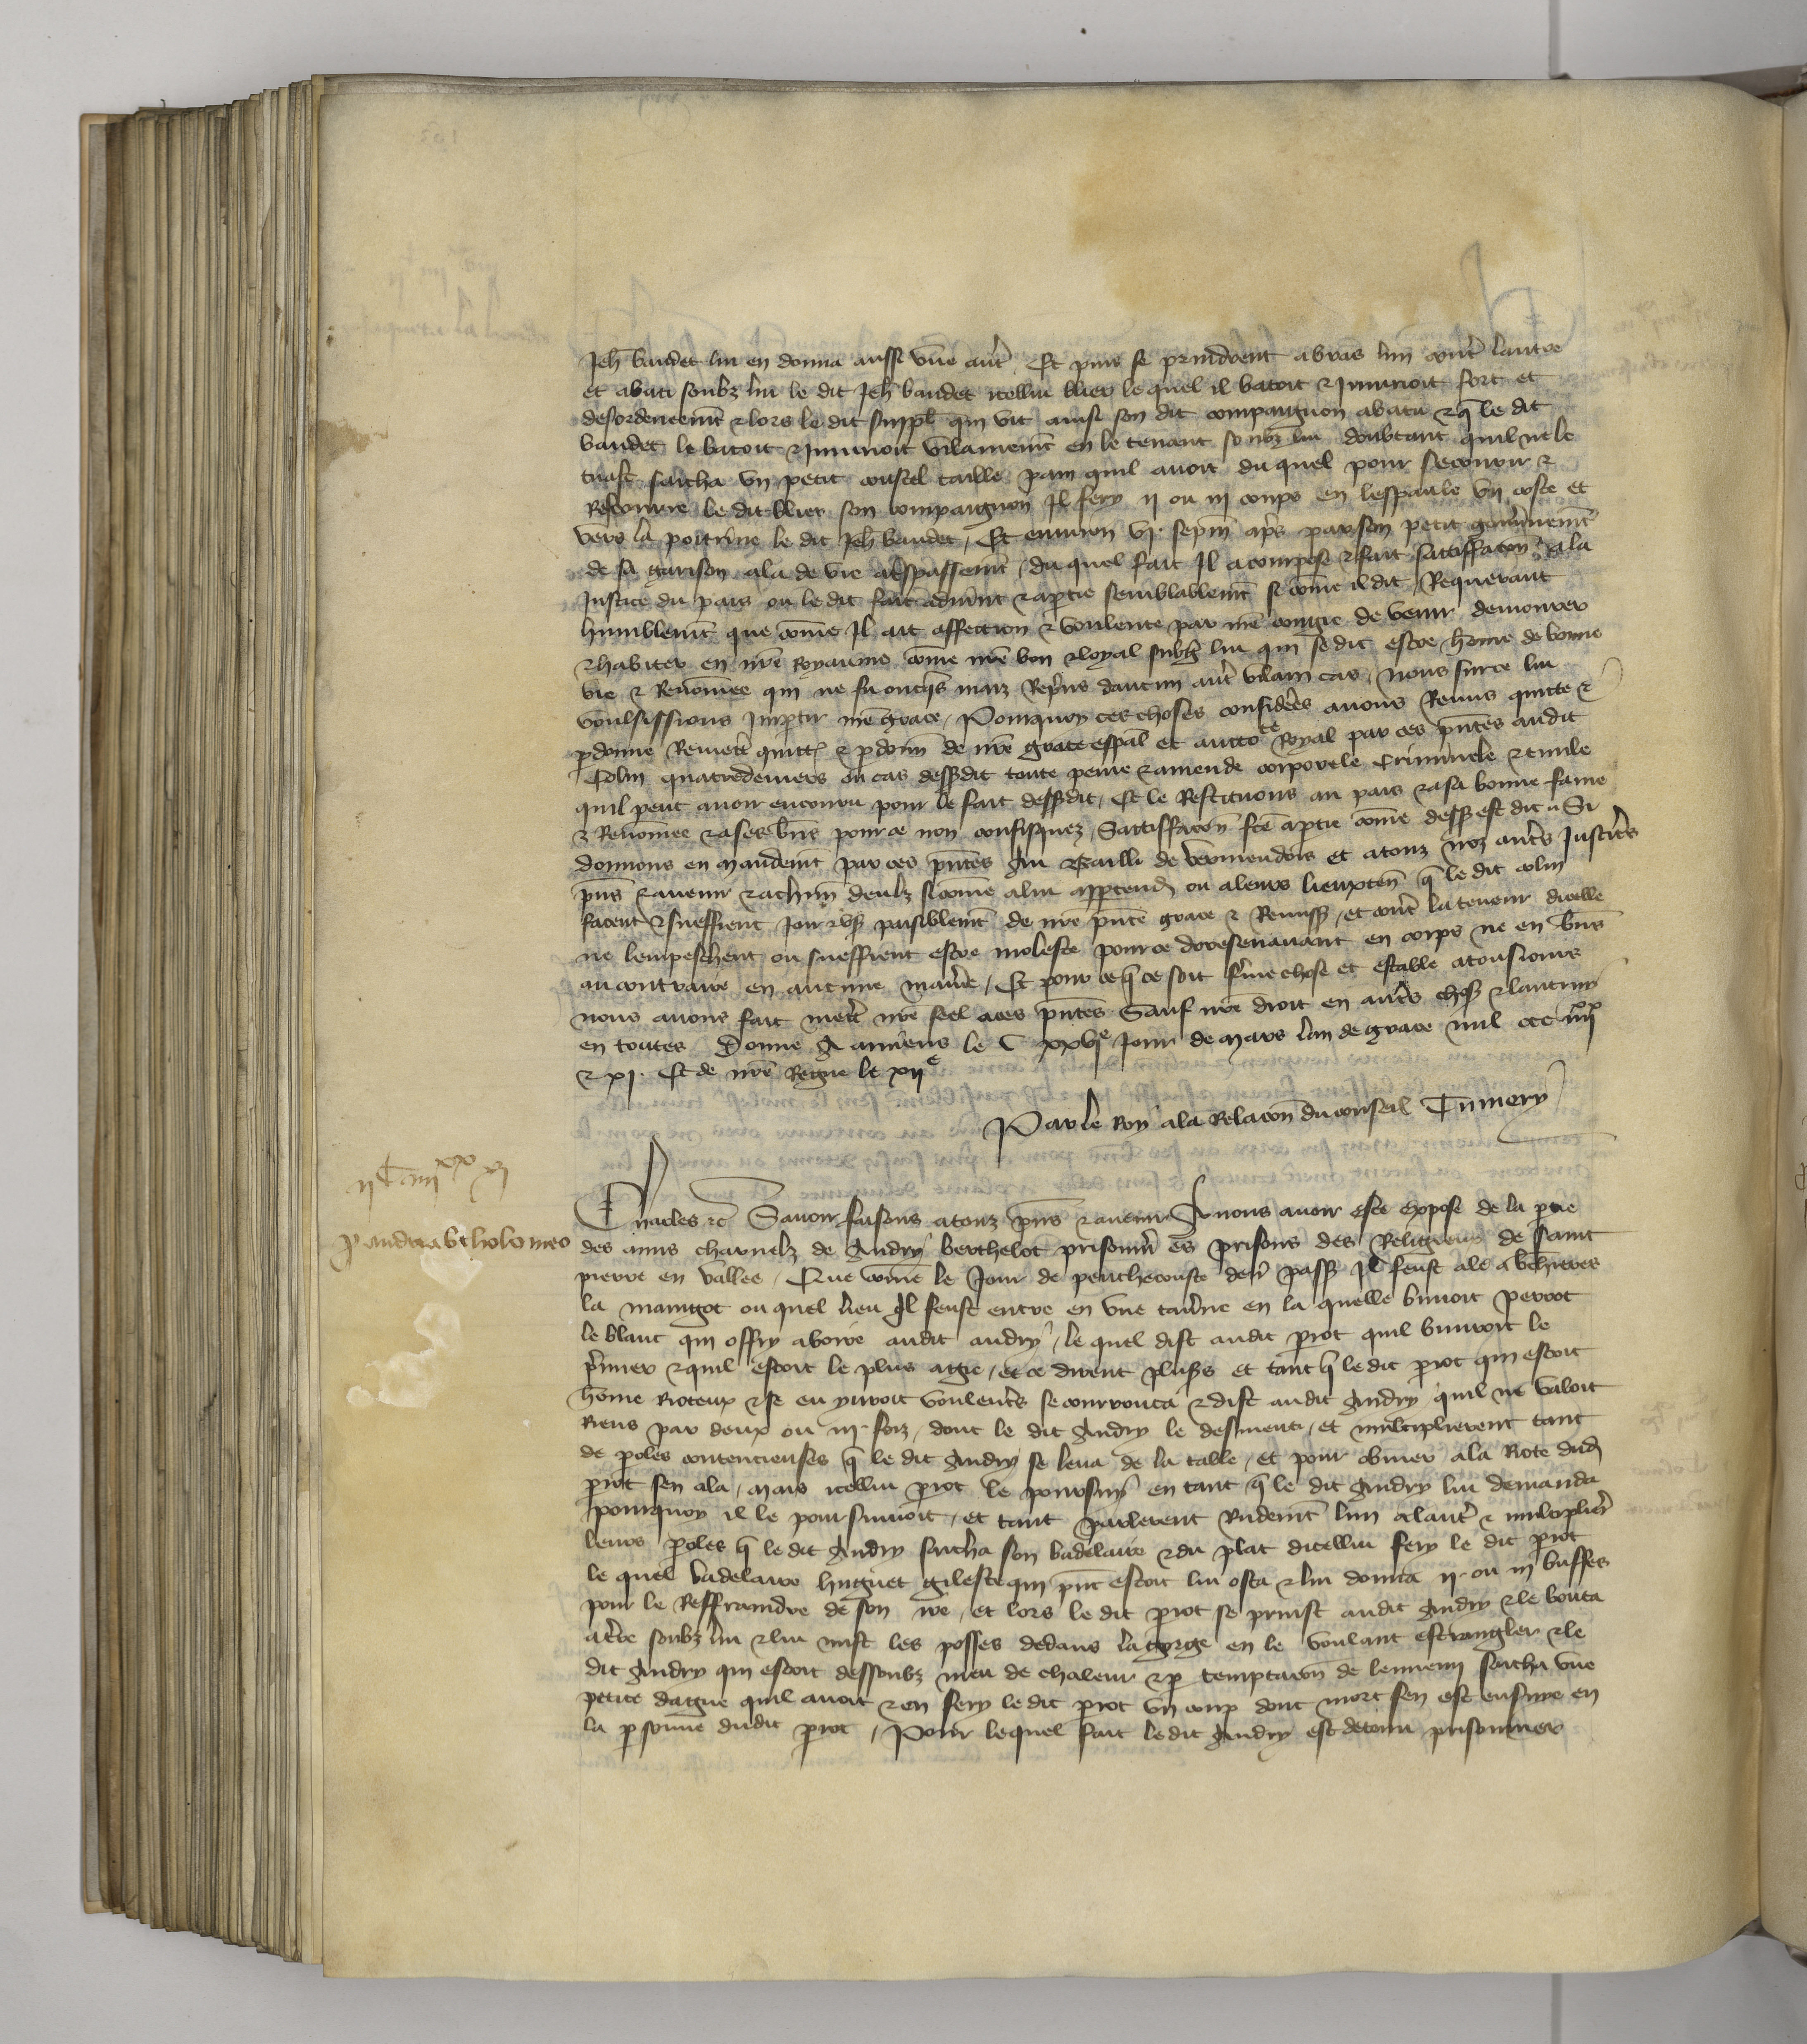 Jeh̄ baudet lui en donna aussi une aut̄r Et puis se prindrent a bras lun contr̄ lautre
et abati soubz lui le dit Jeh̄ baudet icellui blier le quel il batoit & Iniurioit fort et
desordeneemt̄ & lors le dit suppl̄ qui vit ainsi son dit compaignon abatu & q̄ le dit
baudet le batoit & Iniurioit vilainemt̄ en le tenant soubz lui doubtant quil ne le
tuast saicha un petit coustel taille pain quil avoit du quel pour secourir &
Rescourre le dit blier son compaignon Il fery ii ou iii coups en lespaule un coste et
vers la poitrine le dit Jeh̄ baudet / Et environ vi. sepm̄ ap̄s par son petit gouv̄nemt̄
de sa garison ala de vie a trespassemt̄ / du quel fait Il a compose & fait satisffac̄on a la
Justice du pais ou le dit fait advint & a partie semblablemt̄ si cōme il dit Requerant
humblemt̄ que cōme Il ait affection & voulente par nr̄e congie de venir demourer
& habiter en nr̄e Royaume cōme nr̄e bon & loyal subḡ lui qui se dit estre hōme de bonne
vie & Renōmee qui ne fu onqz̄ maiz Repris daucun aut̄r vilain cas / nous sur ce lui
voulsissions Impartir nr̄e grace / Pourquoy ces choses considerees avons Remis quitte &
p̄donne Remett̄ quitt̄ & p̄donn̄ de nr̄e grace esp̄al et auctote Royal par ces p̄ntes audit
Colin quatredeniers ou cas dessusdit toute peine & amende corporele Criminele & civile
quil peut avoir encouru pour le fait dessusdit / Et le Restituons au pais & a sa bonne fame
& Renōmee & a ses bn̄s pour ce non confisquez / Sattisffac̄on fc̄e a partie cōme dessus est dit Si
donnons en mandemt̄ par ces p̄ntes Au Bailli de vermendois et a touz noz aut̄rs Justic̄rs
p̄ns & avenir & a ch̄un deulx si cōme a lui appartend̄ ou a leurs lieuxten̄ q̄ le dit colin
facent & sueffrent Jouir & us̄ paisiblemt̄ de nr̄e p̄nte grace & Remiss̄ / et contr̄ la teneur dicelle
ne lempeschent ou sueffrent estre moleste pour ce doresenavant en corps ne en bn̄s
au contraire en aucune manier̄e / Et pour ce q̄ ce soit ferme chose et estable a tousiours
nous avons fait mett̄ nr̄e seel a ces p̄ntes Sauf nr̄e droit en aut̄rs choses & lautruy
en toutes Donne A amiens le xxvie Jour de Mars lan de grace mil ccc iiiixx
& xi. Et de nr̄e Regne le xiie
Par le Roy a la Relac̄on du conseil Tumery
iic iiiixx xi
p̄ andrea btholomeo
Charles &c̄ Savoir faisons a touz p̄ns & avenir A nous avoir este expose de la partie
des amis charnelz de Andry berthelot prisonni̅ es prisons des Religieux de saint
pierre en vallee / Que cōme le Jour de penthecouste derr̄ pass̄ Il feust ale a bercheres
la maingot ou quel lieu Il feust entre en une taverne en la quelle buvoit perrot
le blanc qui offry a boire audit andry / le quel dist audit p̄rot quil buvroit le
p̄mier & quil estoit le plus aagie / et ce dirent plus̄s et tant q̄ le dit p̄rot qui estoit
hōme Rioteux & se enyvroit voulent̄rs se courrouca & dist audit Andry quil ne valoit
Riens par deux ou iii. foiz / dont le dit Andry le desmenti / et multiplierent tant
de p̄oles contencieuses q̄ le dit Andry se leva de la table / et pour obvier a la Riote dud̄
p̄rot sen ala / Mais icellui p̄rot le poursuy en tant q̄ le dit Andry lui demanda
pourquoy il le poursuivoit / et tant parlerent Rudemt̄ lun a laut̄r & multiplier̄
leurs p̄oles q̄ le dit Andry saicha son badelaire & du plat dicellui fery le dit p̄rot
le quel badelaire huguet gileste qui p̄nt estoit lui osta & lui donna ii. ou iii buffes
pour le Reffraindre de son ire / et lors le dit p̄rot se prinst audit Andry & le bouta
a t̄rre soubz lui & lui mist les posses dedans la gorge en le voulant estrangler & le
dit Andry qui estoit dessoubz meu de chaleur & p̄ temptac̄on de lennemi saicha une
petite dague quil avoit & en fery le dit p̄rot un coup dont mort sen est ensuye en
la p̄sonne dudit p̄rot / Pour lequel fait le dit Andry est detenu prisonnier